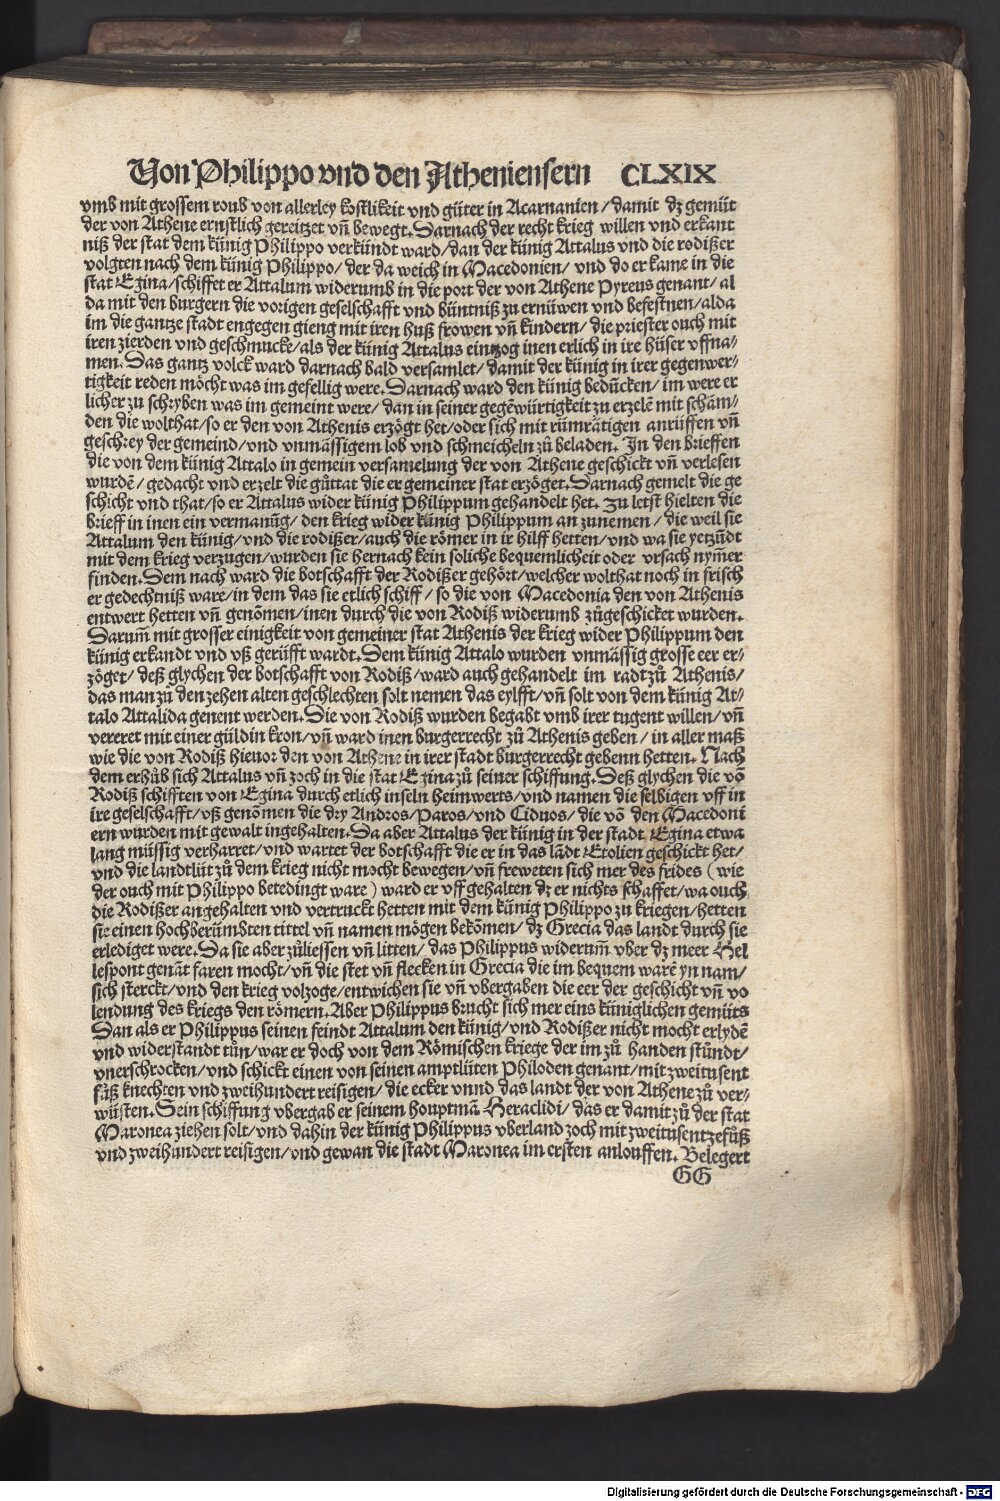 Von Philippo vnd den Atheniensern CLXIX
vmb mit grossem roub von allerley kostlikeit vnd güter in Acarnanien/damit dz gemüt
der von Athene ernstlich gereitzet vñ bewegt. Darnach der recht krieg willen vnd erkant
niß der stat dem künig Philippo verkündt ward/dan der künig Attalus vnd die rodißer
volgten nach dem künig Philippo/der da weich in Macedonien/ vnd do er kame in die
stat Egina/schiffet er Attalum widerumb in die port der von Athene Pyreus genant/al
da mit den burgern die vorigen geselschafft vnd büntniß zu ernüwen vnd befestnen/alda
im die gantze stadt engegen gieng mit iren huß frowen vñ kindern/ die priester ouch mit
iren zierden vnd geschmucke/als der künig Attalus eintzog inen erlich in ire hüser vffna-
men. Das gantz volck ward darnach bald versamlet/ damit der künig in irer gegenwer-
tigkeit reden möcht was im gesellig were. Darnach ward den künig bedücken/ im were er
licher zu schryben was im gemeint were/ dan in seiner gegēwürtigkeit zu erzelē mit schäm/
den die wolthat/so er den von Athenis erzögt het/oder sich mit rümrätigen anrüffen vñ
geschrey der gemeind/vnd vnmässigem lob vnd schmeicheln zů beladen. In den brieffen
die von dem künig Attalo in gemein versamelung der von Athene geschickt vñ verlesen
wurdē/ gedacht vnd erzelt die gůttat die er gemeiner stat erzöget. Darnach gemelt die ge
schicht vnd that/so er Attalus wider künig Philippum gehandelt het. Zu letst hielten die
brieff in inen ein vermanūg/ den krieg wider künig Philippum an zunemen/ die weil sie
Attalum den künig/vnd die rodißer/auch die römer in ir hilff hetten/vnd wa sie yetzūdt
mit dem krieg verzugen/wurden sie hernach kein soliche bequemlicheit oder vrsach nym̄er
finden. Dem nach ward die botschafft der Rodißer gehört/welcher wolthat noch in frisch
er gedechtniß ware/in dem das sie etlich schiff/ so die von Macedonia den von Athenis
entwert hetten vñ genōmen/inen durch die von Rodiß widerumb zůgeschicket wurden.
Darum̄ mit grosser einigkeit von gemeiner stat Athenis der krieg wider Philippum den
künig erkandt vnd vß gerüfft wardt. Dem künig Attalo wurden vnmässig grosse eer er-
zöget/ deß glychen der botschafft von Rodiß/ ward auch gehandelt im radt zů Athenis/
das man zů den zehen alten geschlechten solt nemen das eylfft/vñ solt von dem künig At-
talo Attalida genent werden. Die von Rodiß wurden begabt vmb irer tugent willen/vñ
vereret mit einer güldin kron/vñ ward inen burgerrecht zů Athenis geben/ in aller maß
wie die von Rodiß hieuor den von Athene in irer stadt burgerrecht gebenn hetten. Nach
dem erhůb sich Attalus vñ zoch in die stat Egina zů seiner schiffung. Deß glychen die vō
Rodiß schifften von Egina durch etlich inseln heimwerts/vnd namen die selbigen vff in
ire geselschafft/vß genōmen die dry Andros/Paros/vnd Cidnos/die vō den Macedoni
ern wurden mit gewalt ingehalten. Da aber Attalus der künig in der stadt Egina etwa
lang müssig verharret/vnd wartet der botschafft die er in das lādt Etolien geschickt het/
vnd die landtlüt zů dem krieg nicht mocht bewegen/vñ freweten sich mer des frides (wie
der ouch mit Philippo betedingt ware) ward er vff gehalten dz er nichts schaffet/wa ouch
die Rodißer angehalten vnd vertruckt hetten mit dem künig Philippo zu kriegen/hetten
sie einen hochberümbten tittel vñ namen mögen bekōmen/ dz Grecia das landt durch sie
erlediget were. Da sie aber zůliessen vñ litten/ das Philippus widerum̄ vber dz meer Hel
lespont genāt faren mocht/vñ die stet vñ flecken in Grecia die im bequem warē yn nam/
sich sterckt/vnd den krieg volzoge/entwichen sie vñ vbergaben die eer der geschicht vñ vo
lendung des kriegs den römern. Aber Philippus brucht sich mer eins küniglichen gemüts
Dan als er Philippus seinen feindt Attalum den künig/vnd Rodißer nicht mocht erlydē
vnd widerstandt tůn/war er doch von dem Römischen kriege der im zů handen stůndt/
vnerschrocken/vnd schickt einen von seinen amptlüten Philoden genant/mit zweitusent
fůß knechten vnd zweihundert reisigen/ die ecker vnnd das landt der von Athene zů ver-
wüsten. Sein schiffung vbergab er seinem houptmā Heraclidi/das er damit zů der stat
Maronea ziehen solt/vnd dahin der künig Philippus vberland zoch mit zweitusent zefůß
vnd zweihundert reisigen/vnd gewan die stadt Maronea im ersten anlouffen. Belegert
GG
Digitalisierung gefördert durch die Deutsche Forschungsgemeinschaft - DFG